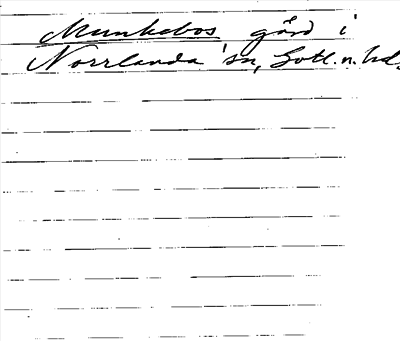 Munkebos gård i
Norrlanda sn, Gotl. n. hd.